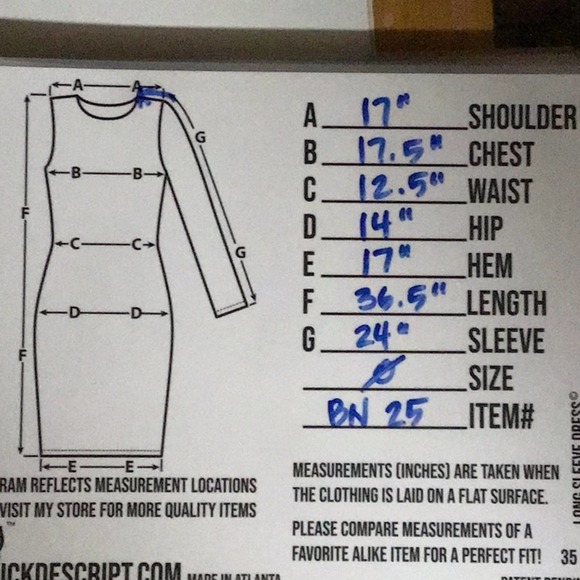 A A
G
B B
F
C C
G
D D
F
E E
A 17" SHOULDER
B 17.5" CHEST
C 12.5" WAIST
D 14" HIP
E 17" HEM
F 36.5" LENGTH
G 24" SLEEVE
0 SIZE
BN 25 ITEM#
RAM REFLECTS MEASUREMENT LOCATIONS
VISIT MY STORE FOR MORE QUALITY ITEMS
MEASUREMENTS (INCHES) ARE TAKEN WHEN
THE CLOTHING IS LAID ON A FLAT SURFACE.
PLEASE COMPARE MEASUREMENTS OF A
FAVORITE ALIKE ITEM FOR A PERFECT FIT! 35
ICKDESCRIPT.COM MADE IN ATLANTA
LONG SLEEVE DRESS©